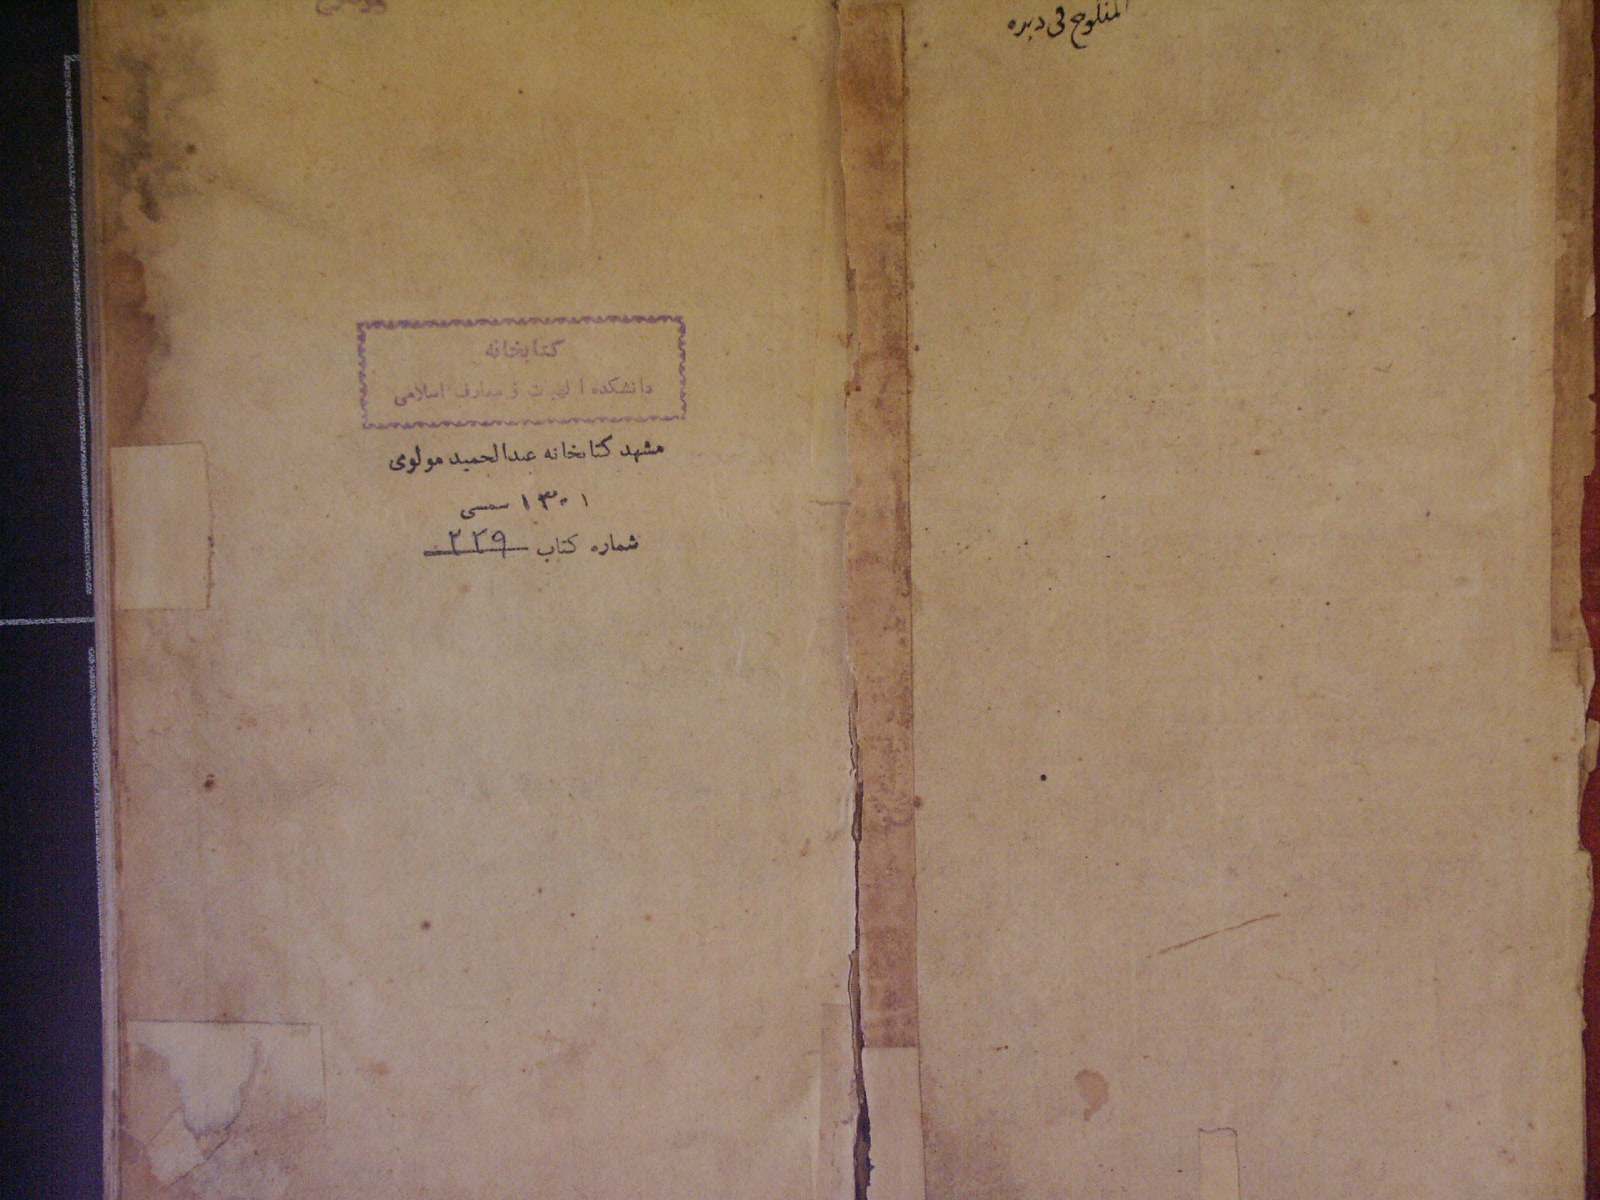 فی دبره
کتابخانه
دانشکده الهیات و معارف اسلامی
مشهد کتابخانه عبدالحمید مولوی
۱۳۰۱ شمسی
شماره کتاب ۲۲۹